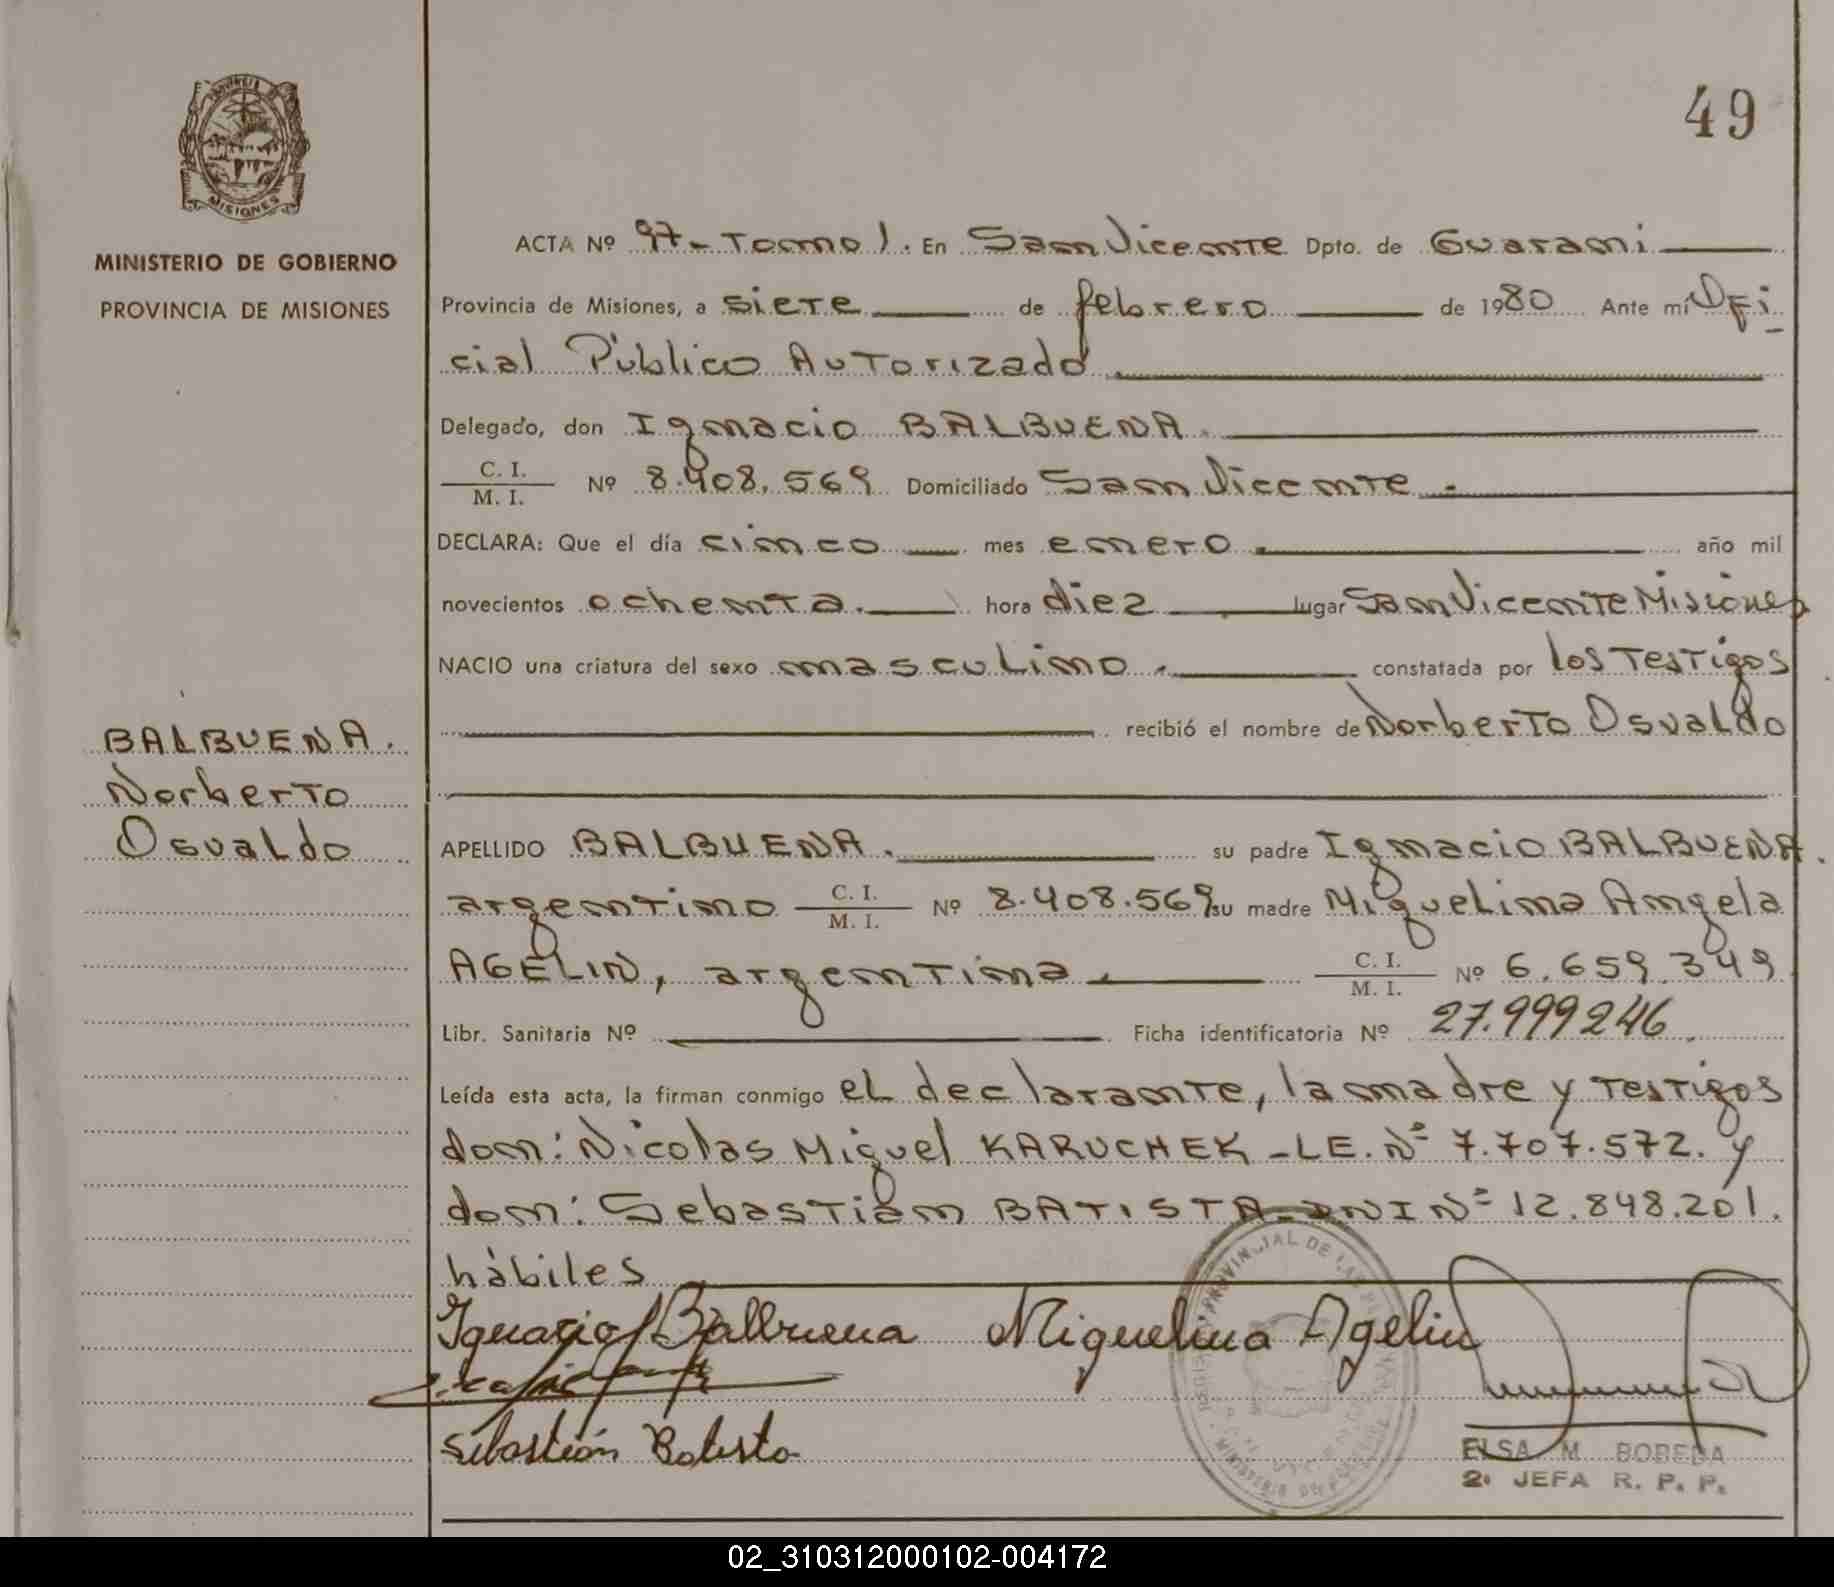 PROVINCIA DE
MISIONES
MINISTERIO DE GOBIERNO
PROVINCIA DE MISIONES
49
ACTA Nº 97- Tomo 1. En San Vicente Dpto. de Guaraní
Provincia de Misiones, a siete de febrero de 1980 Ante mí Ofi
cial Público Autorizado
Delegado, don Ignacio BALBUENA.
C. I.
M. I. Nº 8.408.569 Domiciliado San Vicente.-
DECLARA: Que el día cinco mes enero año mil
novecientos ochenta. hora diez lugar San Vicente Misiones
NACIO una criatura del sexo masculino. constatada por los Testigos
recibió el nombre de Norberto Osvaldo
BALBUENA.
Norberto
Osvaldo
APELLIDO BALBUENA. su padre Ignacio BALBUENA.
argentino C. I.
M. I. Nº 8.408.569 su madre Miguelina Angela
AGELIN, argentina. C. I.
M. I. Nº 6.659.349
Libr. Sanitaria Nº Ficha identificatoria Nº 27.999246
Leída esta acta, la firman conmigo el declarante, la madre y testigos
don: Nicolas Miguel KARUCHEK -LE. Nº 7.707.572. y
don: Sebastián BATISTA-DNI Nº 12.848.201.
hàbiles
Ignacio Balbuena Miguelina Agelin
Sebastián Batista
ELSA M. BOBEDA
2º JEFA R. P. P.
02_310312000102-004172